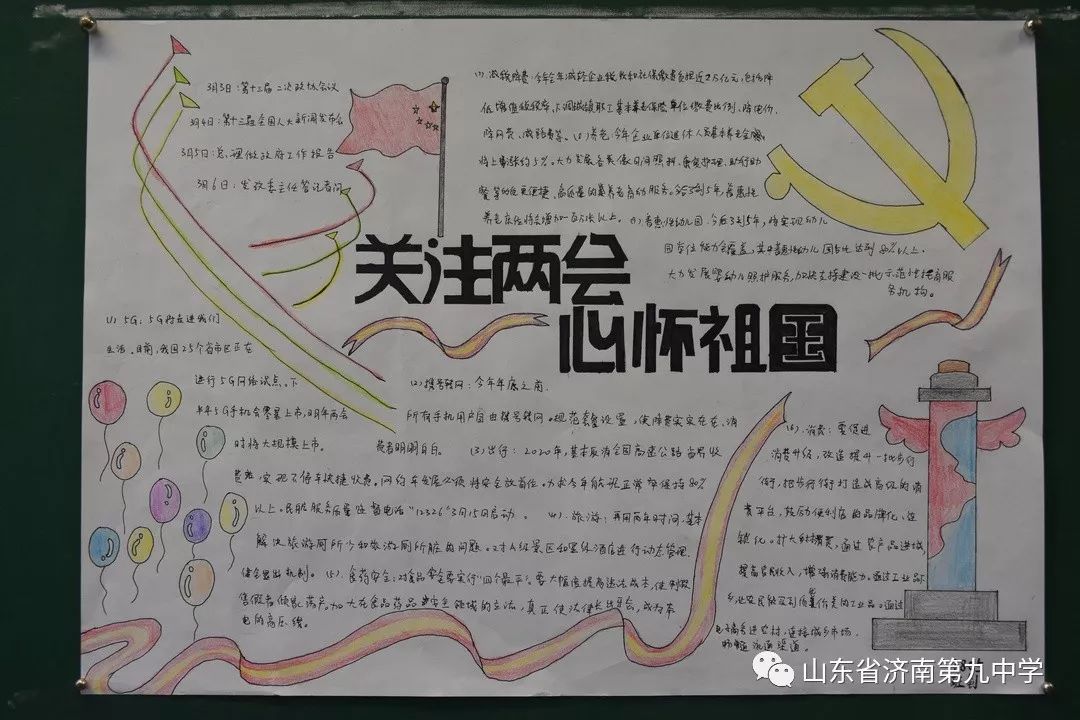 3月3日:第十三届二次政协会议
3月4日:第十三届全国人大新闻发布会
3月5日:总理做政府工作报告
3月6日:发改委主任答记者问
(1)减税降费:今年全年减轻企业税收和社保缴费负担近2万亿元,包括降
低增值税税率,下调城镇职工基本养老保险单位缴费比例、降电价、
降网费、减路费等。(2)养老:今年企业单位退休人员基本养老金
将上涨约5%。大力发展日间照料、康复护理、助行助
餐等更便捷、高质量的养老服务。今后3到5年,普惠性
养老床位将会增加以上。(3)普惠性幼儿园:今后3到5年,将实现幼儿
园学位能力全覆盖,其中普惠性幼儿园占比达到80%以上。
大力发展婴幼儿照护服务,加快支持建设一批示范性托育服
务机构。
关注两会
心怀祖国
(1)5G:5G将走进我们
生活。目前,我国25个省市区正在
进行5G网络试点。下
半年5G手机会零星上市,明年两会
时将大规模上市。
(2)携号转网:今年年底之前,
所有手机用户自由携号转网。规范套餐设置,使降费实实在在、消
费者明明白白。
(3)出行:2020年,基本取消全国高速公路省界收
费站,实现不停车快捷收费。网约车发展必须将安全放首位。力求今年航班正常率保持80%
以上。民航服务质量监督电话"12326"3月15日启动。
(4).旅游:再用两年时间,基本
解决旅游厕所少和旅游厕所脏的问题。对A级景区和星级酒店进行动态管理,
健全退出机制。
(5).食药安全:对食品安全要实行"四个最严"。要大幅度提高违法成本,使制假
售假者倾家荡产。加大在食品药品安全领域的立法,真正使法律长出牙齿,成为带
电的高压线。
(6).消费:要促进
消费升级,改造提升一批步行
街,把步行街打造成高级的消
费平台,鼓励便利店的品牌化、连
锁化。扩大乡村消费,通过农产品进城
提高农民收入,增强消费能力。通过工业品下
乡让农民能买到价的工业品。通过
电子商务进农村,连接城乡市场,
畅通流通渠道。
山东省济南第九中学